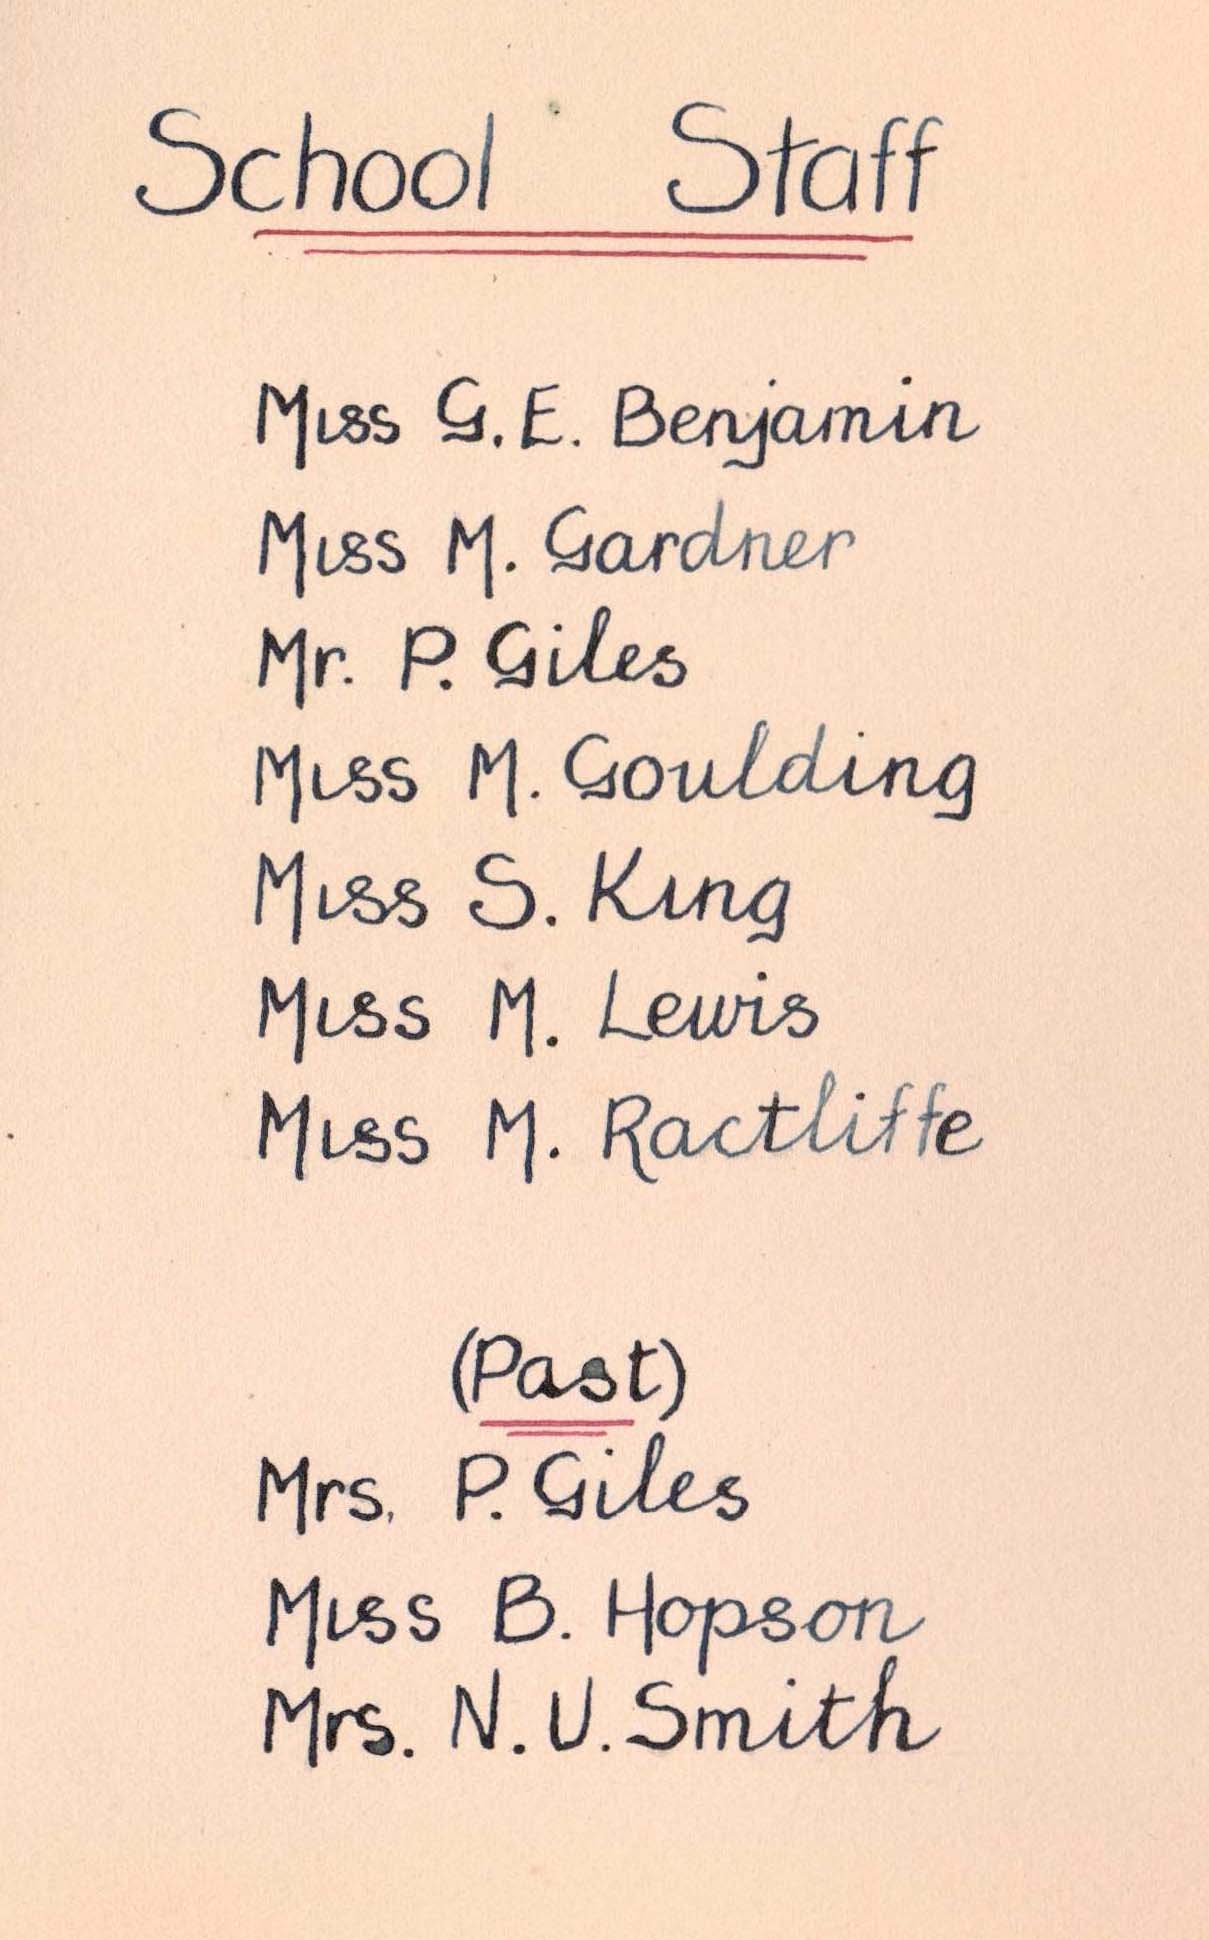 School Staff
Miss G.E. Benjamin
Miss M. Gardner
Mr. P. Giles
Miss M. Goulding
Miss S. King
Miss M. Lewis
Miss M. Ractliffe
(Past)
Mrs. P. Giles
Miss B. Hopson
Mrs. N.U. Smith